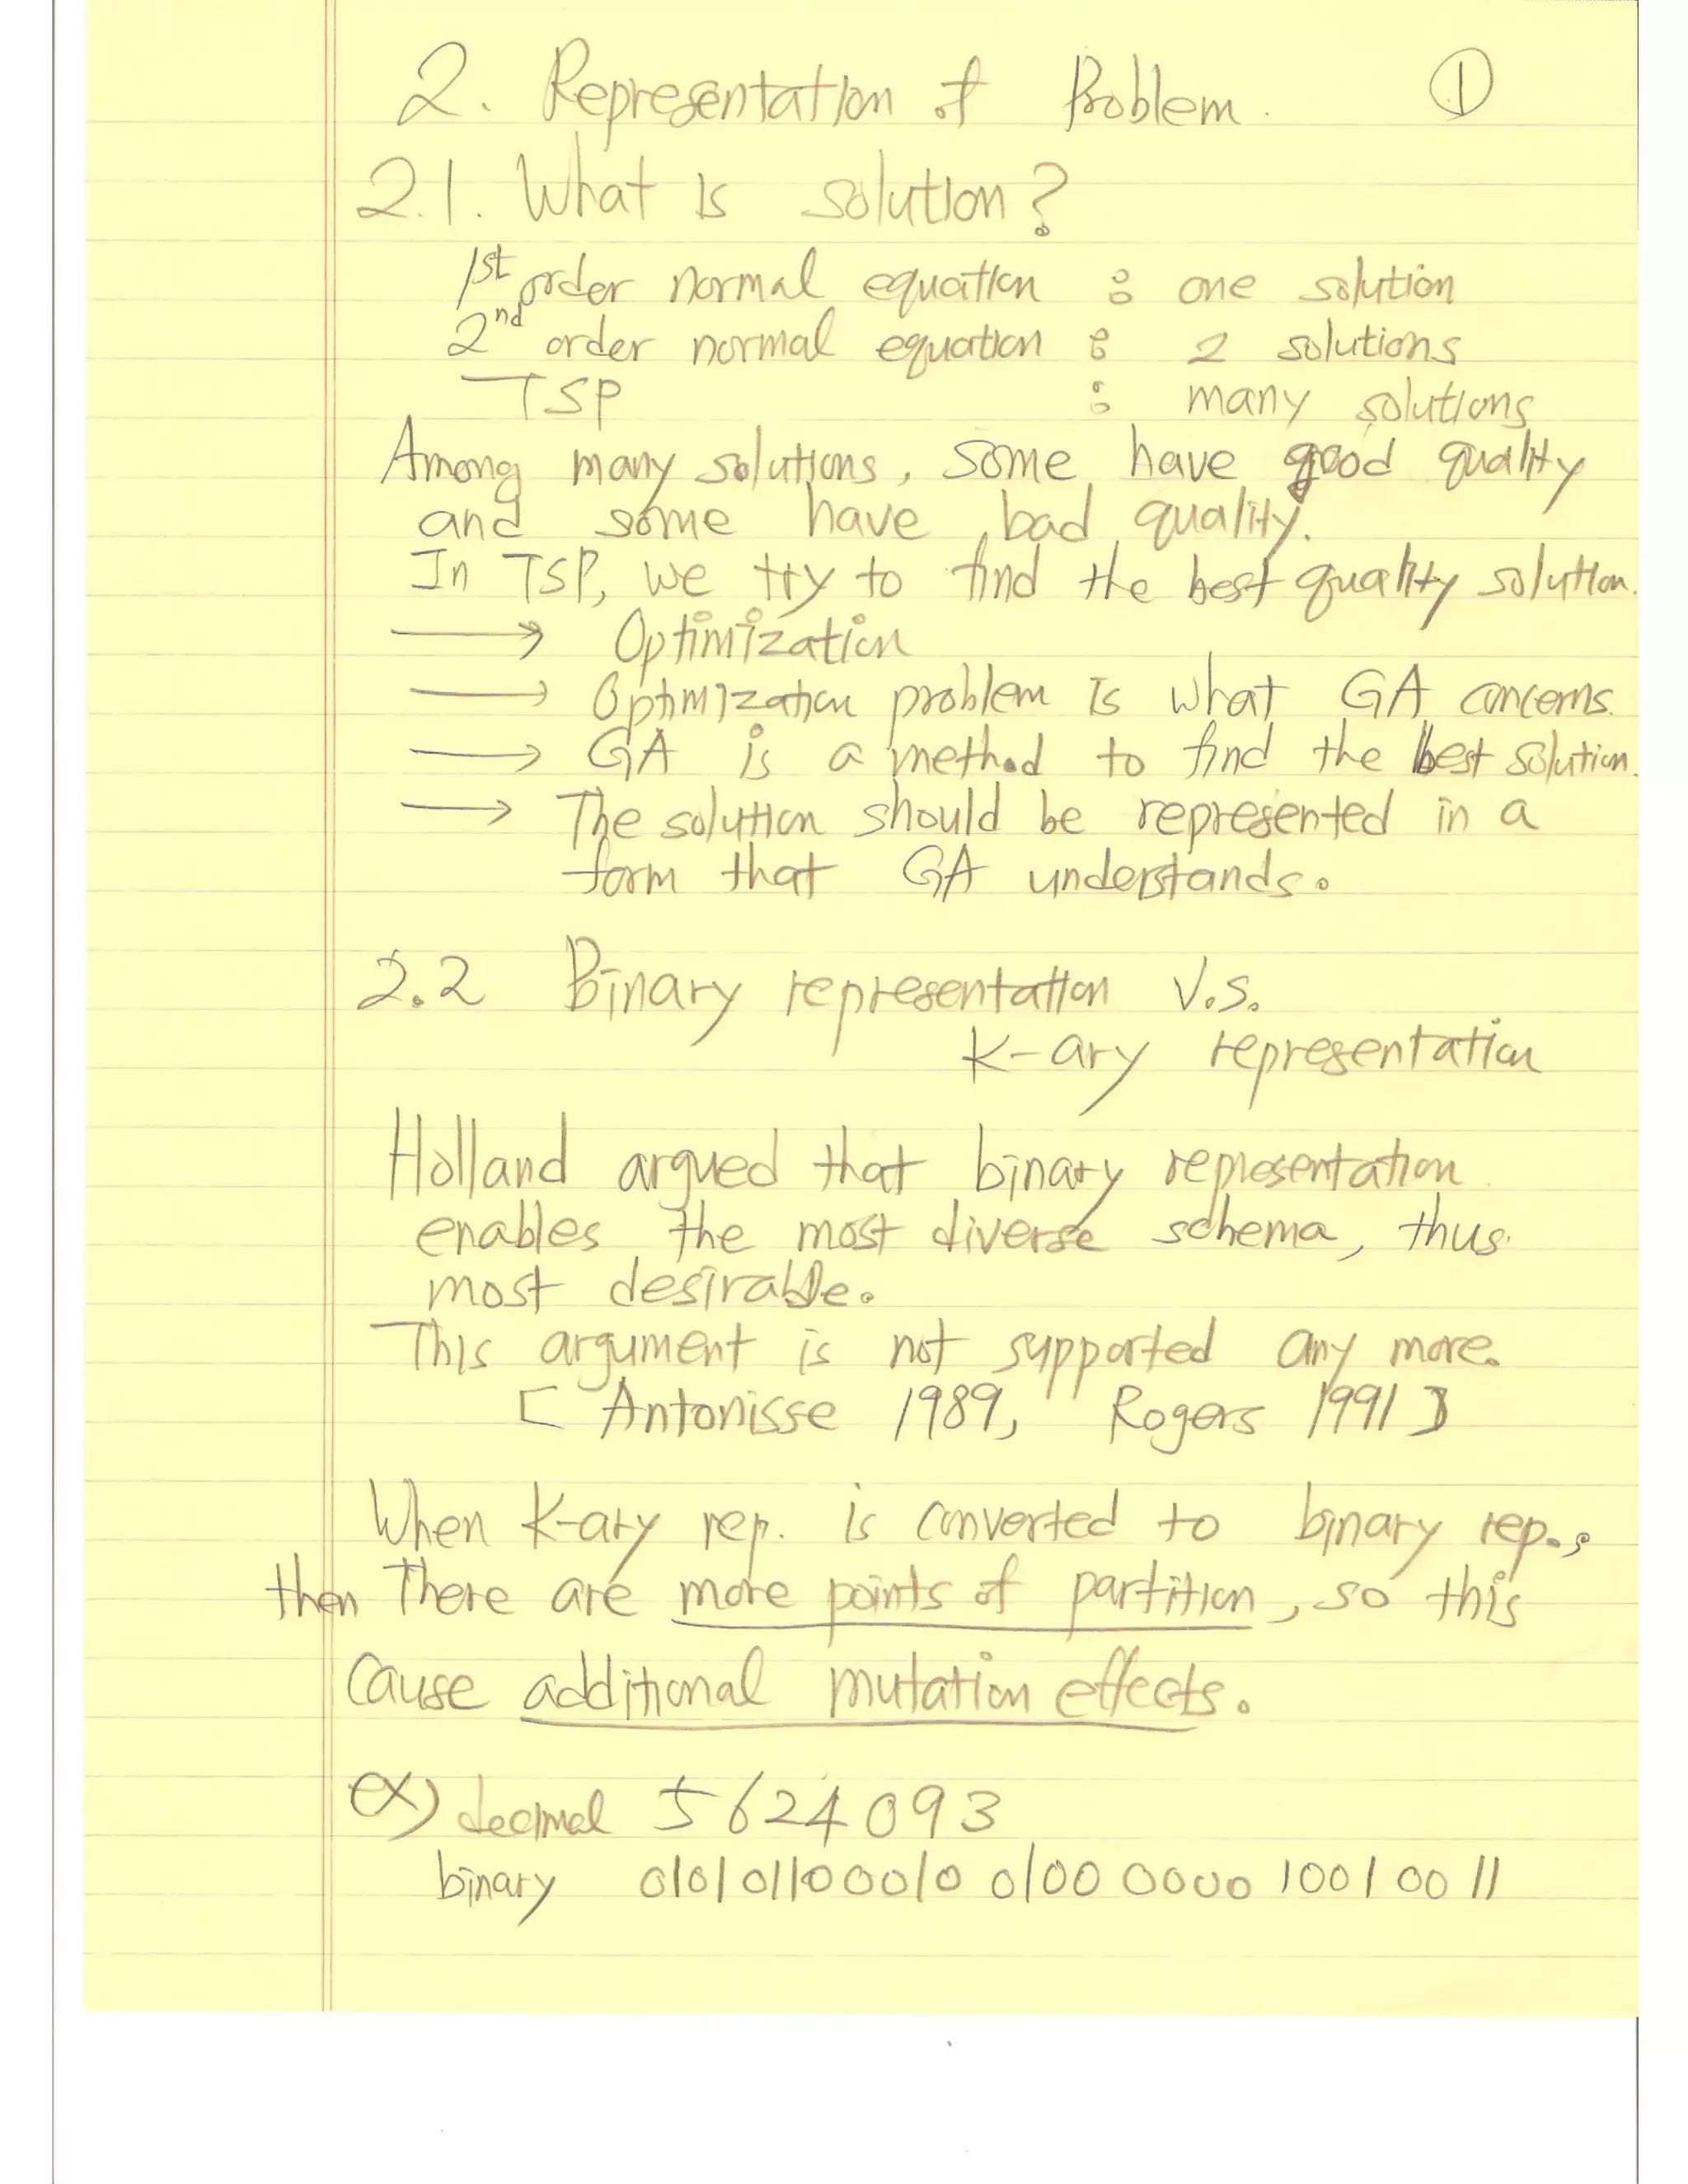 2. Representation of Problem. ①
2.1. What is solution?
1st order normal equation : one solution
2nd order normal equation : 2 solutions
TSP : many solutions
Among many solutions, some have good quality
and some have bad quality.
In TSP, we try to find the best quality solution.
→ Optimization
→ Optimization problem is what GA concerns.
→ GA is a method to find the best solution.
→ The solution should be represented in a
form that GA understands.
2.2 Binary representation V.S.
K-ary representation
Holland argued that binary representation
enables the most diverse schema, thus
most desirable.
This argument is not supported any more.
[ Antonisse 1989, Rogers 1991 ]
When K-ary rep. is converted to binary rep.,
then There are more points of partition, so this
cause additional mutation effects.
ex) decimal 5624093
binary 010101100010 0100 0000 1001 0011